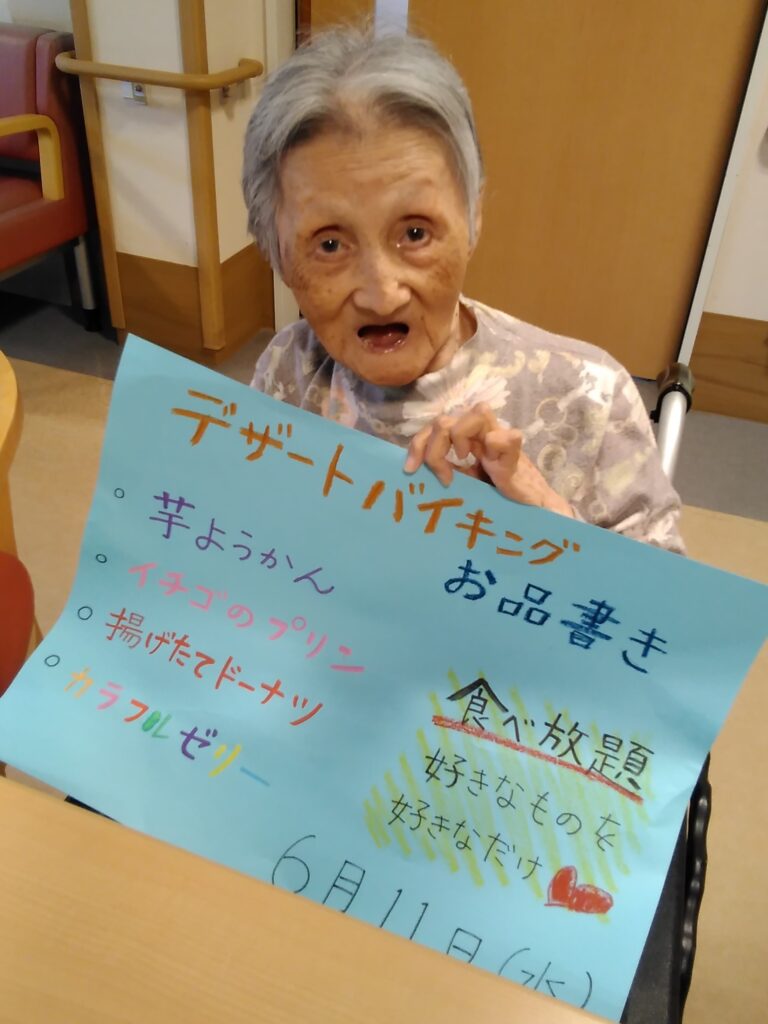 デザートバイキング
お品書き
○ 芋ようかん
○ イチゴのプリン
○ 揚げたてドーナツ
○ カラフルゼリー
食べ放題
好きなものを
好きなだけ
6月11日(水)